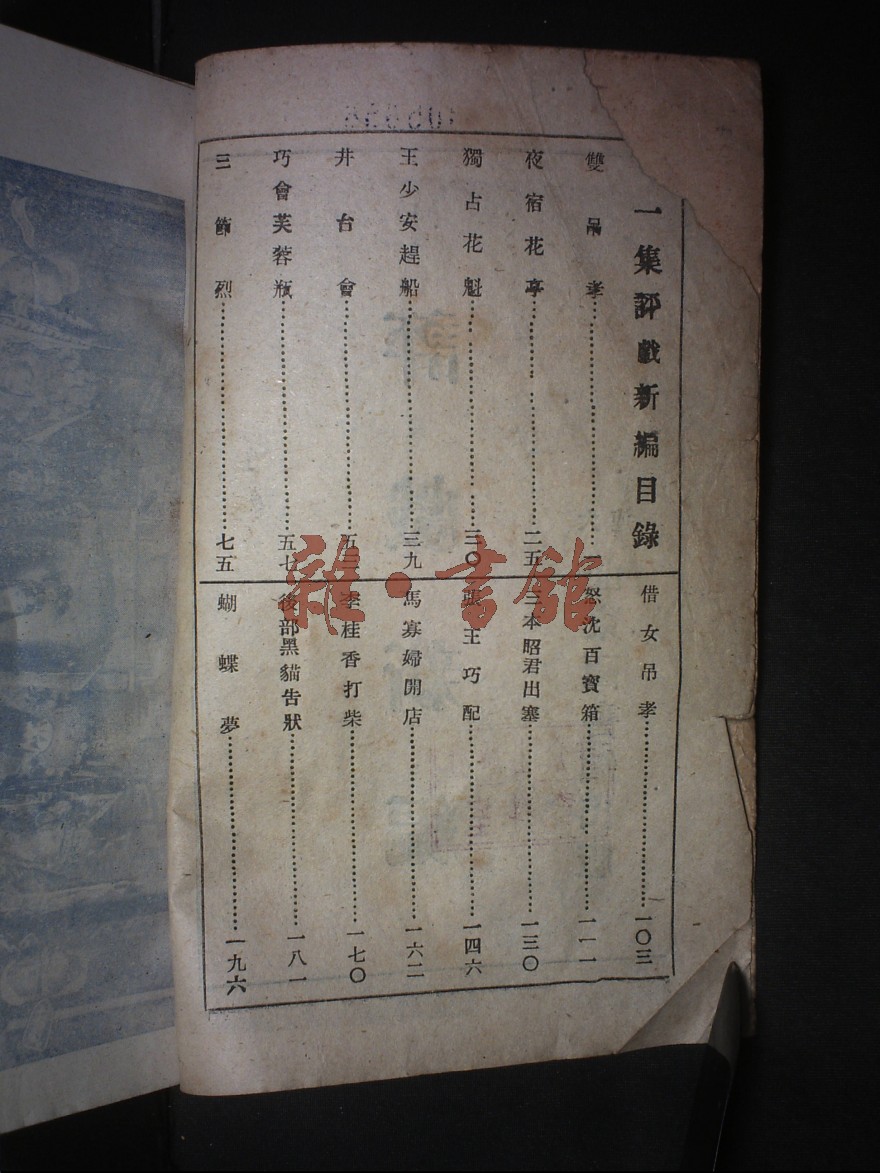 一集評戲新編目錄
雙吊孝 一
夜宿花亭 二五
獨占花魁 三〇
王少安趕船 三九
井台會 五三
巧會芙蓉瓶 五七
三節烈 七五
借女吊孝 一〇三
怒沈百寶箱 一一一
三本昭君出塞 一三〇
王巧配 一四六
馬寡婦開店 一六二
李桂香打柴 一七〇
後部黑貓告狀 一八一
蝴蝶夢 一九六
雜·書館